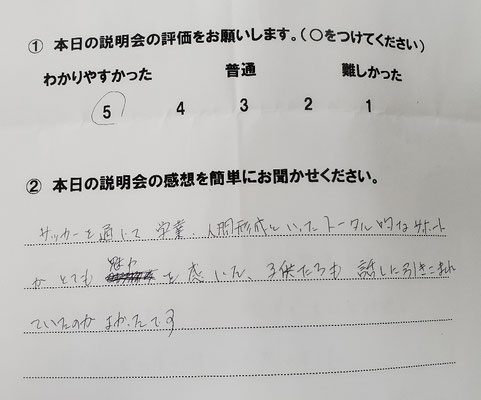 ① 本日の説明会の評価をお願いします。(○をつけてください)
わかりやすかった 普通 難しかった
5 4 3 2 1
② 本日の説明会の感想を簡単にお聞かせください。
サッカーを通じて 学業、人間形成といったトータル的なサポート
が とても 魅力 を感じた、子供たちも 話しに引きこまれ
ていたのが よかったです